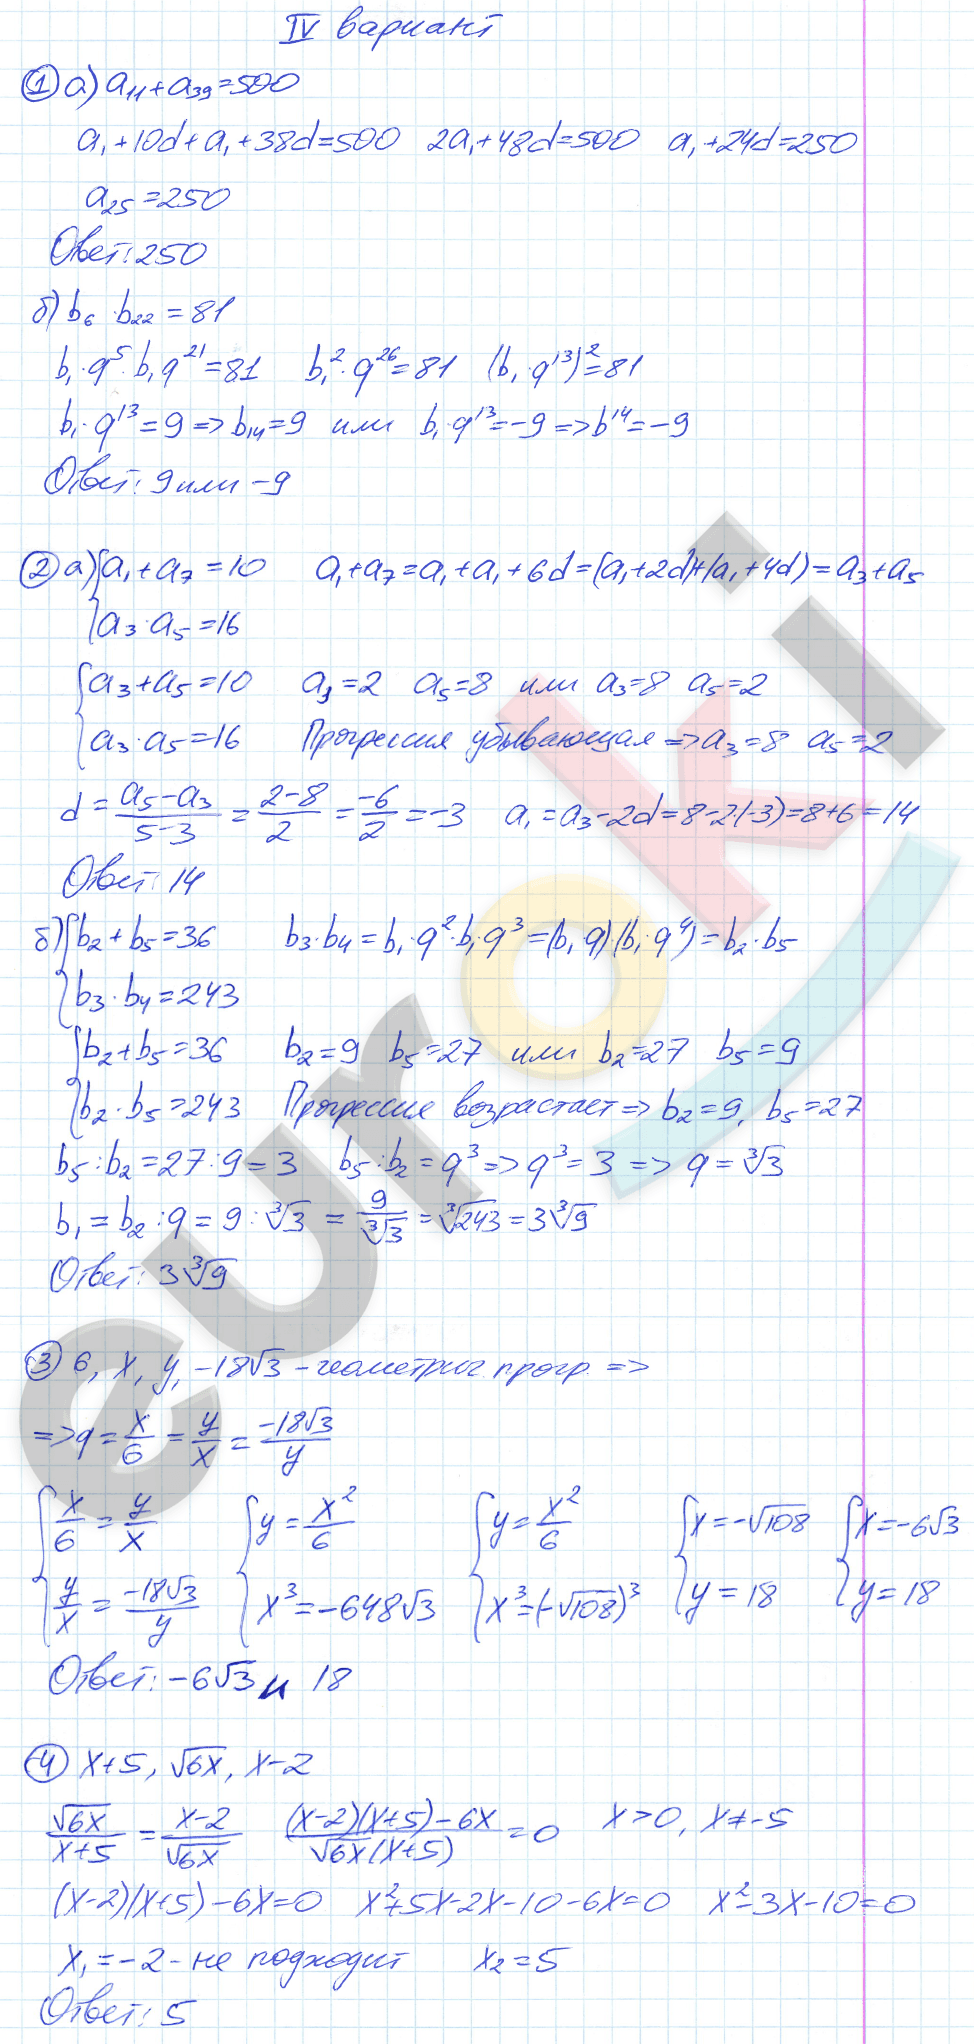 IV вариант
① а) a₁₁+a₃₉=500
a₁+10d+a₁+38d=500 2a₁+48d=500 a₁+24d=250
a₂₅=250
Ответ: 250
б) b₆·b₂₂=81
b₁·q⁵·b₁q²¹=81 b₁²·q²⁶=81 (b₁·q¹³)²=81
b₁·q¹³=9=>b₁₄=9 или b₁·q¹³=-9=>b¹⁴=-9
Ответ: 9 или -9
② а) {a₁+a₇=10 a₁+a₇=a₁+a₁+6d=(a₁+2d)+(a₁+4d)=a₃+a₅
a₃·a₅=16
{a₃+a₅=10 a₃=2 a₅=8 или a₃=8 a₅=2
a₃·a₅=16 Прогрессия убывающая=>a₃=8 a₅=2
d=(a₅-a₃)/(5-3)=(2-8)/2=-6/2=-3 a₁=a₃-2d=8-2·(-3)=8+6=14
Ответ: 14
б) {b₂+b₅=36 b₃·b₄=b₁·q²·b₁·q³=(b₁q)·(b₁·q⁴)=b₂·b₅
b₃·b₄=243
{b₂+b₅=36 b₂=9 b₅=27 или b₂=27 b₅=9
b₂·b₅=243 Прогрессия возрастает=>b₂=9, b₅=27
b₅:b₂=27:9=3 b₅:b₂=q³=>q³=3=>q=∛3
b₁=b₂:q=9:∛3=9/∛3=∛243=3∛9
Ответ: 3∛9
③ 6, x, y, -18√3 - геометрич. прогр. =>
=>q=x/6=y/x=-18√3/y
{x/6=y/x {y=x²/6 {y=x²/6 {x=-√108 {x=-6√3
y/x=-18√3/y x³=-648√3 x³=(-√108)³ y=18 y=18
Ответ: -6√3 и 18
④ x+5, √6x, x-2
√6x/(x+5)=(x-2)/√6x ((x-2)(x+5)-6x)/(√6x(x+5))=0 x>0, x≠-5
(x-2)(x+5)-6x=0 x²+5x-2x-10-6x=0 x²-3x-10=0
x₁=-2 - не подходит x₂=5
Ответ: 5
euroki